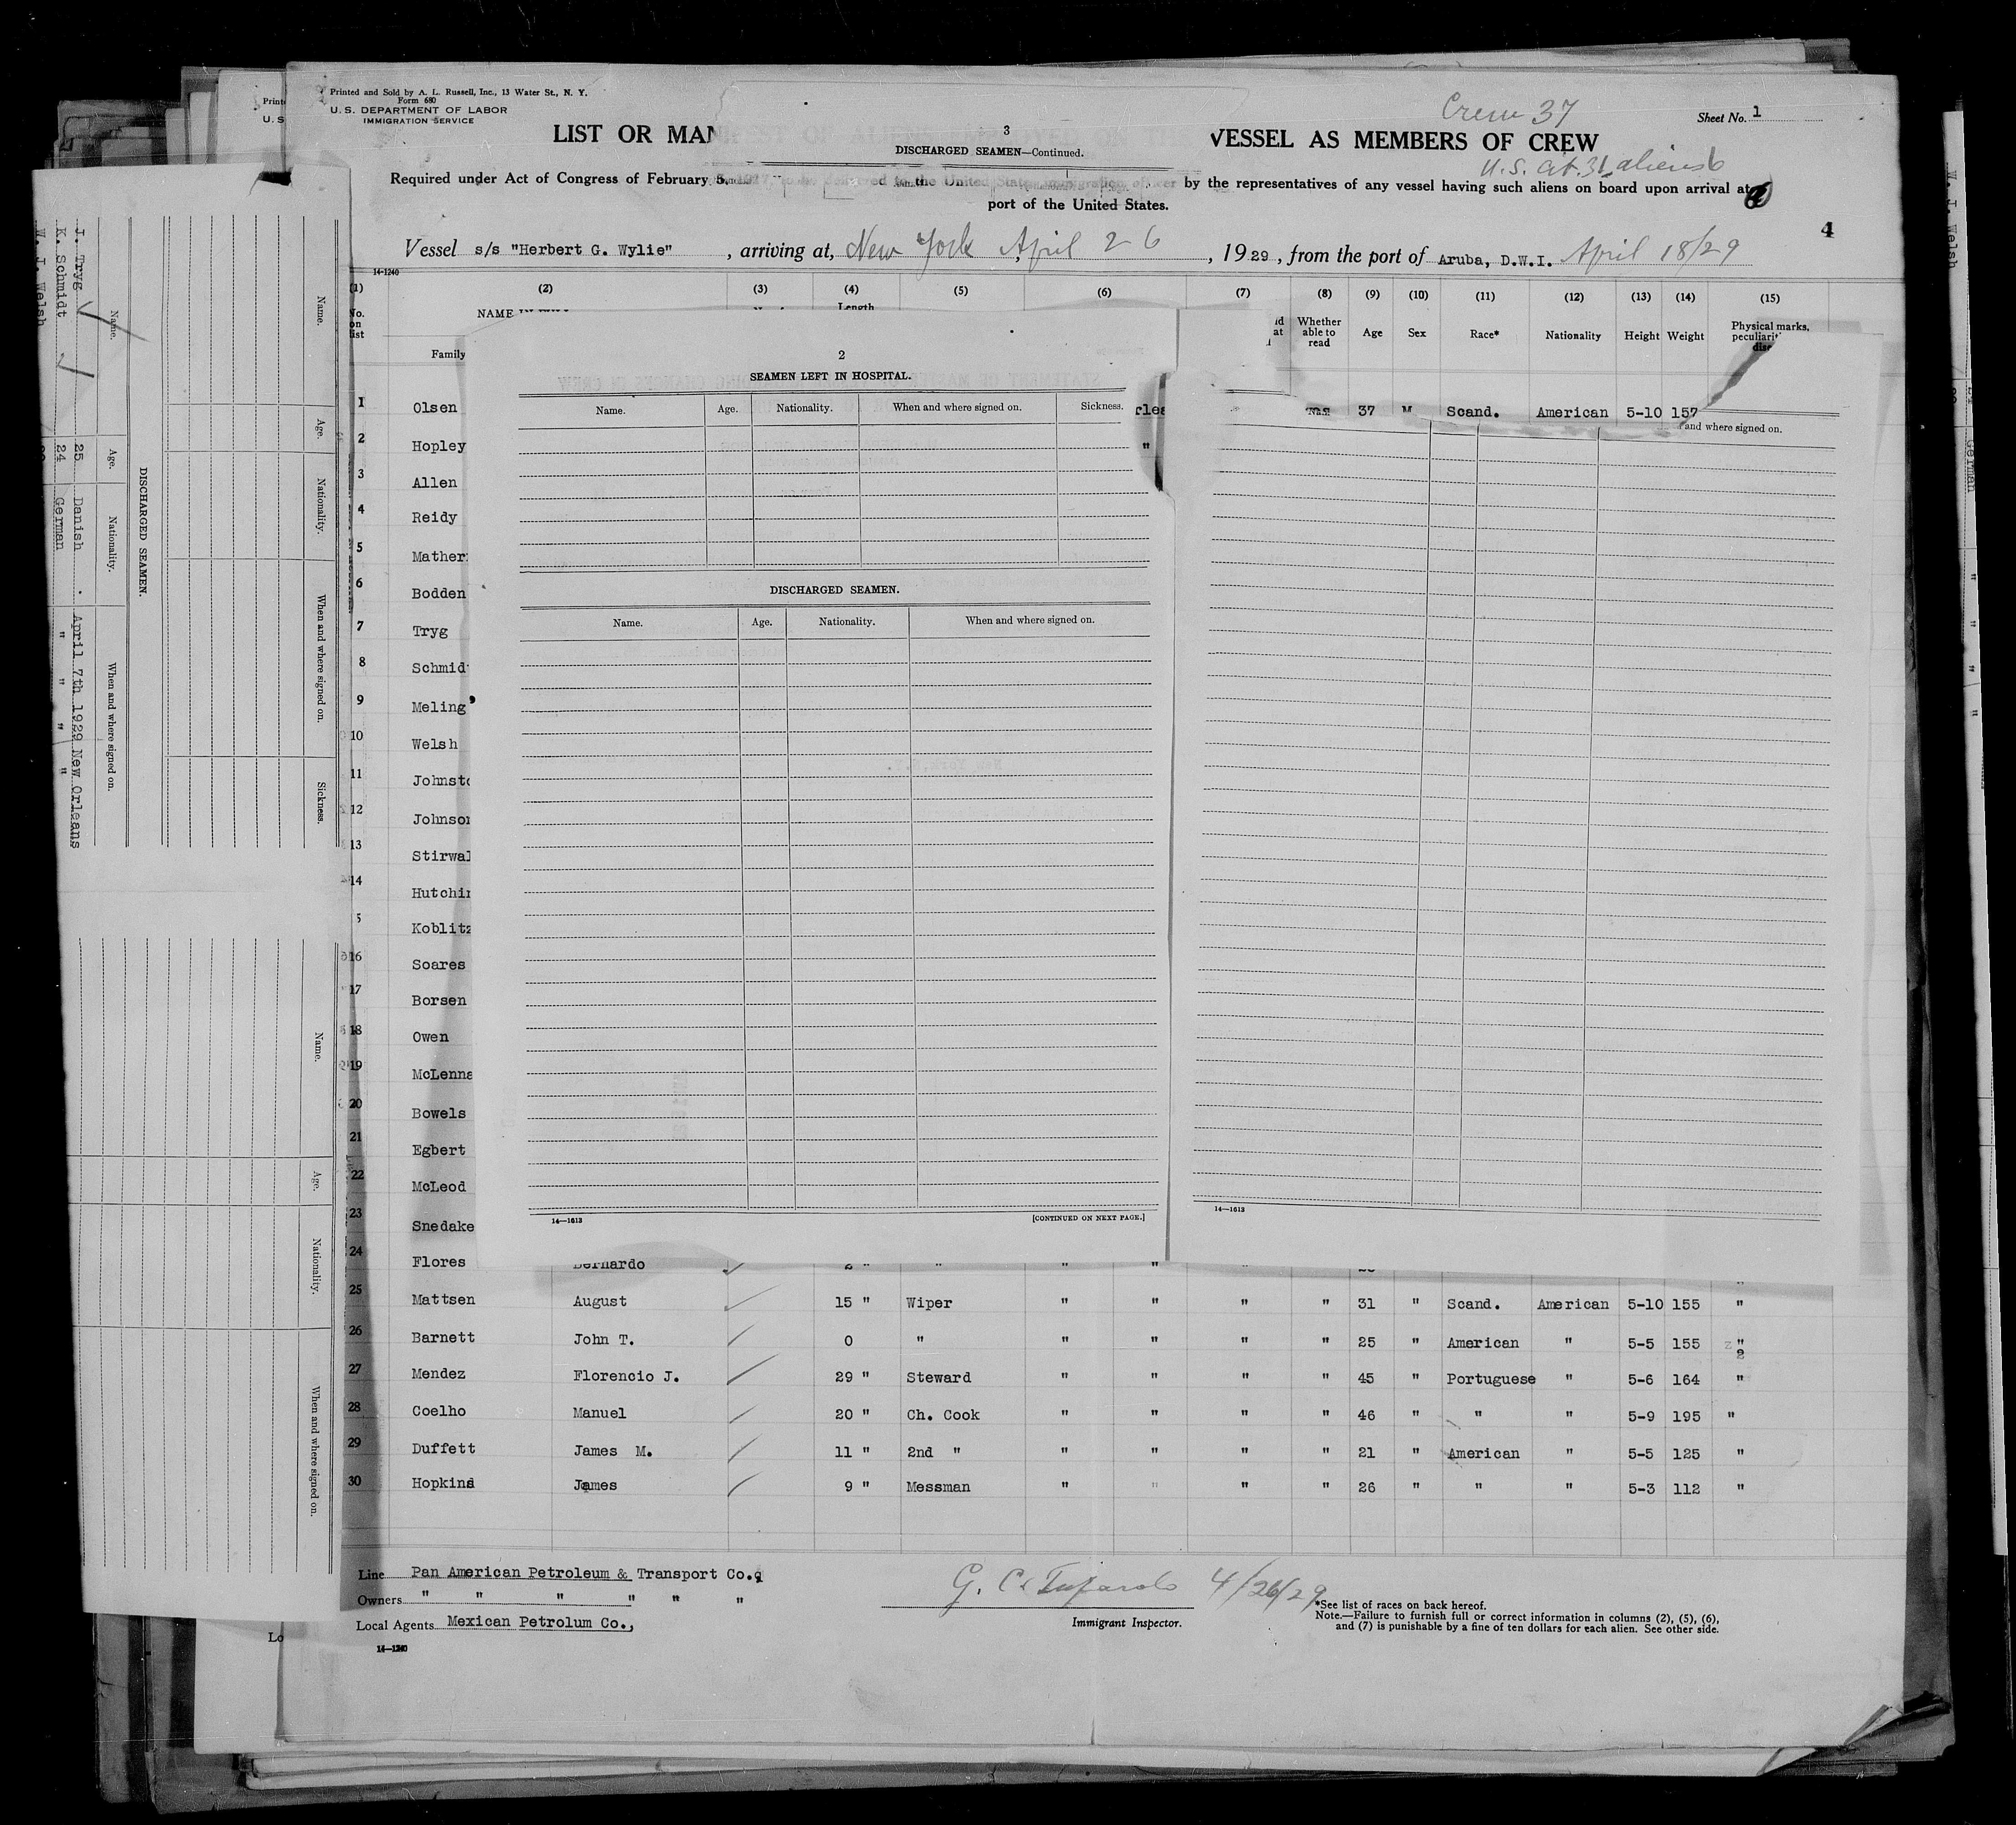 Printed and Sold by A. L. Russell, Inc., 13 Water St., N. Y.
Form 680
U. S. DEPARTMENT OF LABOR
IMMIGRATION SERVICE
Crew 37
Sheet No. 1
LIST OR MAN
3
DISCHARGED SEAMEN—Continued.
VESSEL AS MEMBERS OF CREW
U.S. cit. 31 aliens 6
Required under Act of Congress of February 5, 1917, to be delivered to the United States immigration officer by the representatives of any vessel having such aliens on board upon arrival at a
port of the United States.
4
Vessel s/s "Herbert G. Wylie", arriving at, New York April 26, 1929, from the port of Aruba, D.W.I. April 18/29
14-1240
(1) (2) (3) (4) (5) (6) (7) (8) (9) (10) (11) (12) (13) (14) (15)
No. on list NAME Length Whether able to read Age Sex Race* Nationality Height Weight Physical marks,
Family
1 Olsen 37 M Scand. American 5-10 157
2 Hopley "
3 Allen
4 Reidy
5 Mather
6 Bodden
7 Tryg
8 Schmid
9 Meling
10 Welsh
11 Johnsto
12 Johnson
13 Stirwal
14 Hutchin
5 Koblitz
16 Soares
17 Borsen
18 Owen
19 McLenna
20 Bowels
21 Egbert
22 McLeod
23 Snedake
24 Flores Bernardo 2 " " " " "
25 Mattsen August 15 " Wiper " " " " 31 " Scand. American 5-10 155 "
26 Barnett John T. 0 " " " " " 25 " American " 5-5 155 "
27 Mendez Florencio J. 29 " Steward " " " " 45 " Portuguese " 5-6 164 "
28 Coelho Manuel 20 " Ch. Cook " " " " 46 " " " 5-9 195 "
29 Duffett James M. 11 " 2nd " " " " " 21 " American " 5-5 125 "
30 Hopkins James 9 " Messman " " " " 26 " " " 5-3 112 "
Line Pan American Petroleum & Transport Co.,
Owners " " " " " "
Local Agents Mexican Petrolum Co.,
14—1240
4/26/29
Immigrant Inspector.
*See list of races on back hereof.
Note.—Failure to furnish full or correct information in columns (2), (5), (6),
and (7) is punishable by a fine of ten dollars for each alien. See other side.
2
SEAMEN LEFT IN HOSPITAL.
Name. Age. Nationality. When and where signed on. Sickness.
DISCHARGED SEAMEN.
Name. Age. Nationality. When and where signed on.
14—1613
[CONTINUED ON NEXT PAGE.]
and where signed on.
14—1613
Name. Age. Nationality. When and where signed on. Sickness.
DISCHARGED SEAMEN.
Name. Age. Nationality. When and where signed on.
J. Tryg 25 Danish April 7th 1929 New Orleans
K. Schmidt 24 German " " " "
W. J. Welsh
Name. Age. Nationality. When and where signed on.
W. J. Welsh
German
Lo